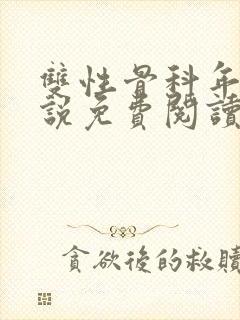 雙性骨科年
說免費閱讀
貪欲後的救贖